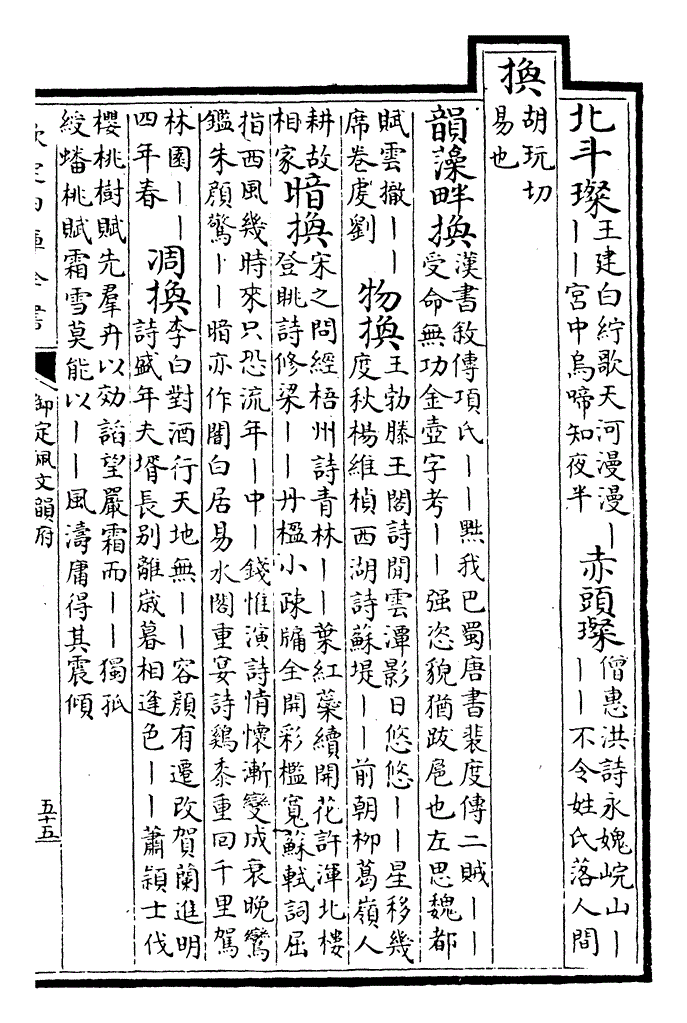 北斗璨王建白紵歌天河漫漫丨丨丨宮中烏啼知夜半 赤頭璨僧惠洪詩永媿峴山丨丨丨不令姓氏落人間
換胡玩切易也
韻藻畔換漢書敘傳項氏丨丨黜我巴蜀唐書裴度傳二賊丨丨受命無功金壺字考丨丨强恣貌猶跋扈也左思魏都
賦雲撤丨丨席卷虔劉 物換王勃滕王閣詩閒雲潭影日悠悠丨丨星移幾度秋楊維楨西湖詩蘇堤丨丨前朝柳葛嶺人
耕故相家暗換宋之問經梧州詩青林丨丨葉紅蘂續開花許渾北樓登眺詩修梁丨丨丹楹小疎牖全開彩檻寬蘇軾詞屈
指西風幾時來只恐流年丨中丨錢惟演詩情懷漸變成衰晚鸞鑑朱顔驚丨丨暗亦作闇白居易水閣重宴詩鷄黍重回千里駕
林園丨丨四年春 凋換李白對酒行天地無丨丨容顔有遷改賀蘭進明詩盛年夫壻長别離歲暮相逢色丨丨蕭頴士伐
櫻桃樹賦先羣卉以効謟望嚴霜而丨丨獨孤綬蟠桃賦霜雪莫能以丨丨風濤庸得其震傾
欽定四庫全書
御定佩文韻府
五十五